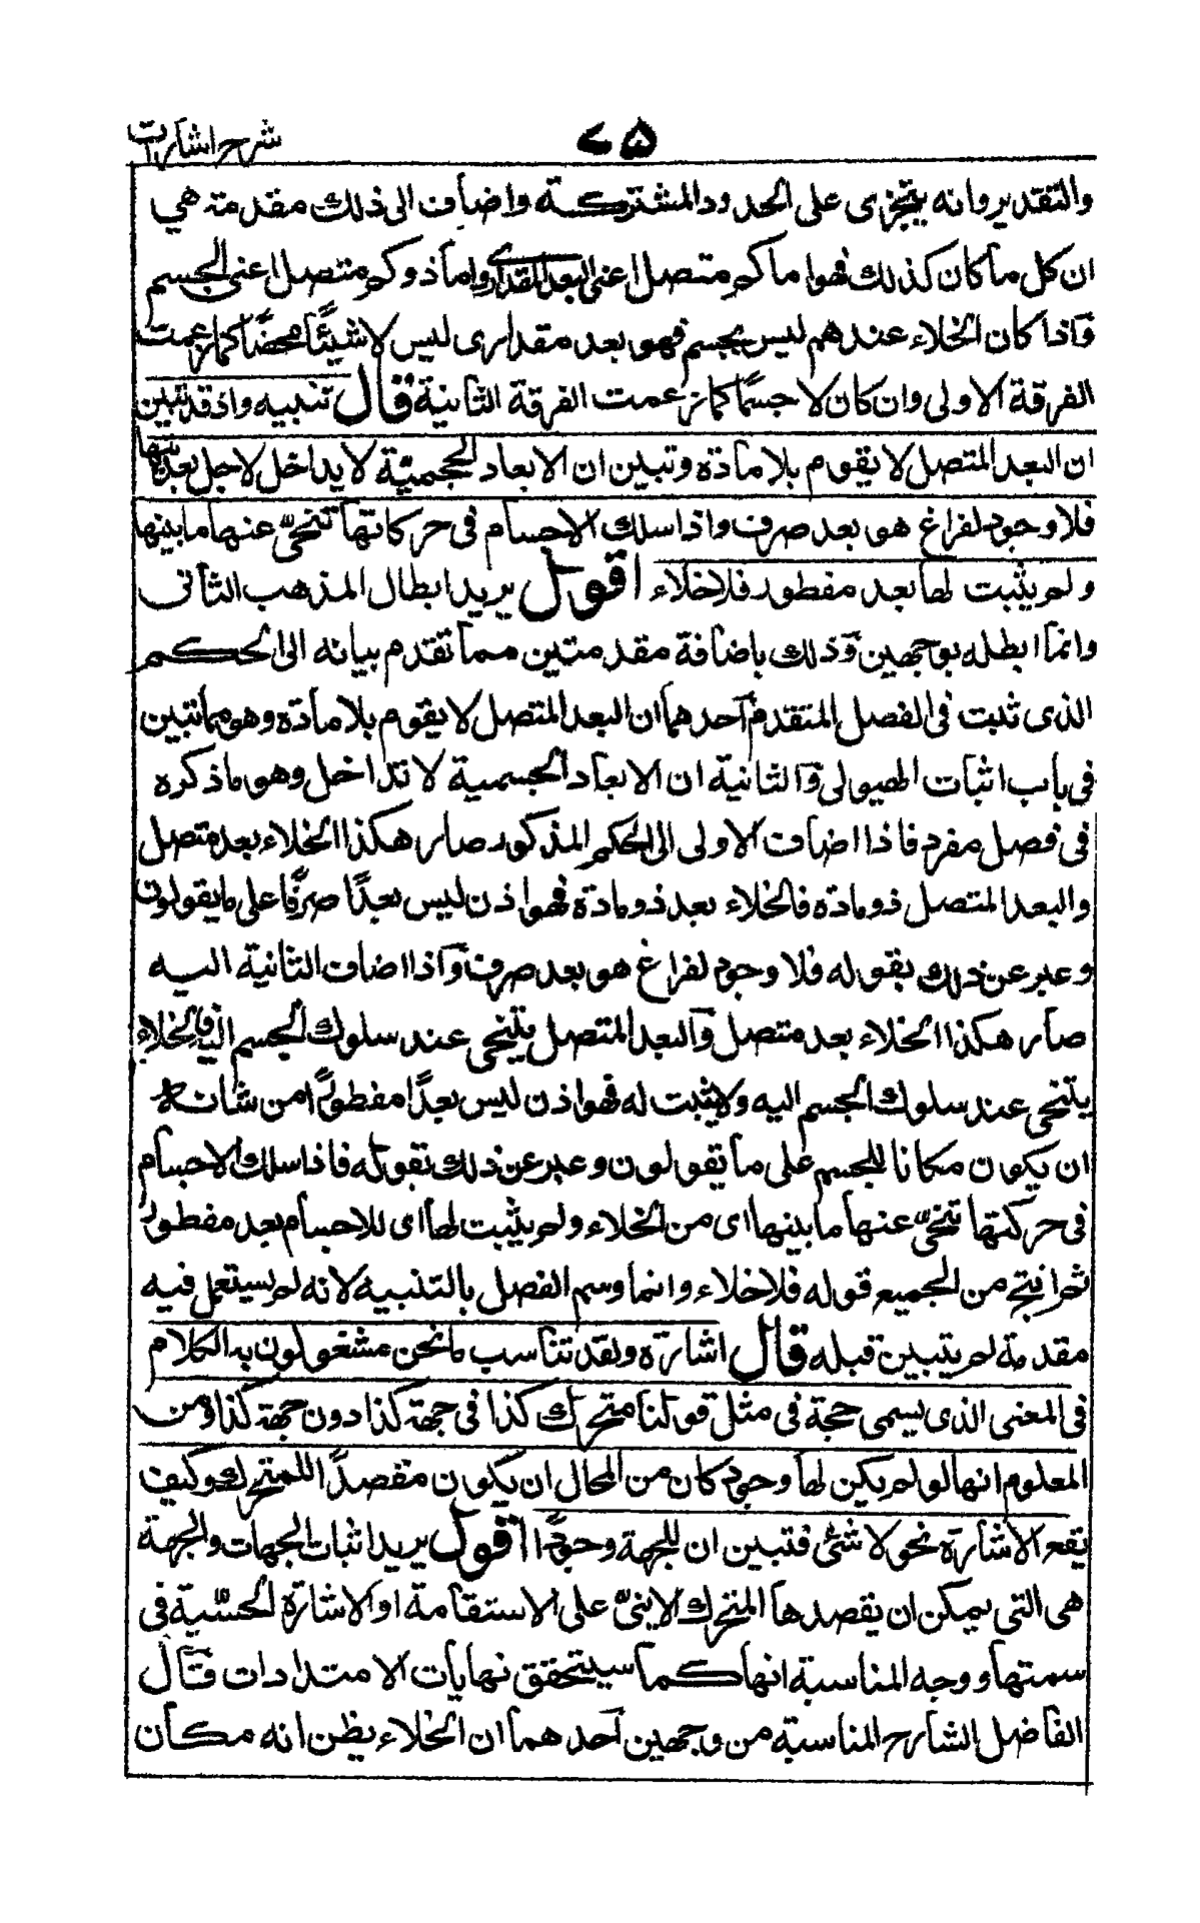 شرح اشارات
والتقدير وانه يتجزى على الحدود المشتركة واضاف الى ذلك مقدمة هي
ان كل ما كان كذلك فهو اما كم متصل اعنى البعد المقدارى واما ذو كم متصل اعنى الجسم
وآذا كان الخلاء عندهم ليس بجسم فهو بعد مقدارى ليس لا شيئًا محضًا كما زعمت
الفرقة الاولى وان كان لا جسمًا كما زعمت الفرقة الثانية قال تنبيه واذ قد تبين
ان البعد المتصل لا يقوم بلا مادة وتبين ان الابعاد الحجميّة لا يداخل لاجل بعديتها
فلا وجود لفراغ هو بعد صرف واذا سلك الاجسام فى حركاتها تنحّى عنها ما بينها
ولم يثبت لها بعد مفطور فلا خلاء اقول يريد ابطال المذهب الثانى
وانما ابطله بوجهين وذلك باضافة مقدمتين مما تقدم بيانه الى الحكم
الذى ثبت فى الفصل المتقدم آحدهما ان البعد المتصل لا يقوم بلا مادة وهو مما تبين
فى باب اثبات الهيولى وآلثانية ان الابعاد الجسمية لا تتداخل وهو ما ذكره
فى فصل مفرد فاذا اضاف الاولى الى الحكم المذكور صار هكذا الخلاء بعد متصل
والبعد المتصل ذو مادة فالخلاء بعد ذو مادة فهو اذن ليس بعدًا صرفًا على ما يقولون
وعبر عن ذلك بقوله فلا وجود لفراغ هو بعد صرف وآذا اضاف الثانية اليه
صار هكذا الخلاء بعد متصل وآلبعد المتصل يتنحى عند سلوك الجسم اليه فالخلاء
يتنحى عند سلوك الجسم اليه ولا يثبت له فهو اذن ليس بعدًا مفطورًا من شانه
ان يكون مكانا للجسم على ما يقولون وعبر عن ذلك بقوله فاذا سلك الاجسام
فى حركتها تنحّى عنها ما بينها اى من الخلاء ولم يثبت لها اى للاجسام بعد مفطور
ثم انتج من الجميع قوله فلا خلاء وانما وسم الفصل بالتنبيه لانه لم يستعمل فيه
مقدمة لم يتبين قبله قال اشارة ولقد تناسب ما نحن مشغولون به الكلام
فى المعنى الذى يسمى جهة فى مثل قولنا متحرك كذا فى جهة كذا دون جهة كذا ومن
المعلوم انها لو لم يكن لها وجود كان من المحال ان يكون مقصدًا للمتحرك وكيف
يقع الاشارة نحو لا شئ فتبين ان للجهة وجودًا اقول يريد اثبات الجهات والجهة
هى التى يمكن ان يقصدها المتحرك الاينىّ على الاستقامة او الاشارة الحسّية فى
سمتها ووجه المناسبة انها كما سيتحقق نهايات الامتدادات قال
الفاضل الشارح المناسبة من وجهين آحدهما ان الخلاء يظن انه مكان